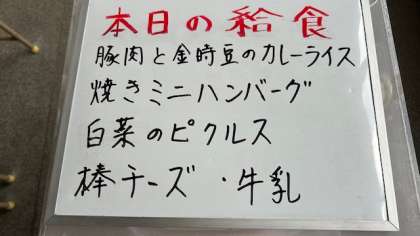 本日の給食
豚肉と金時豆のカレーライス
焼きミニハンバーグ
白菜のピクルス
棒チーズ・牛乳